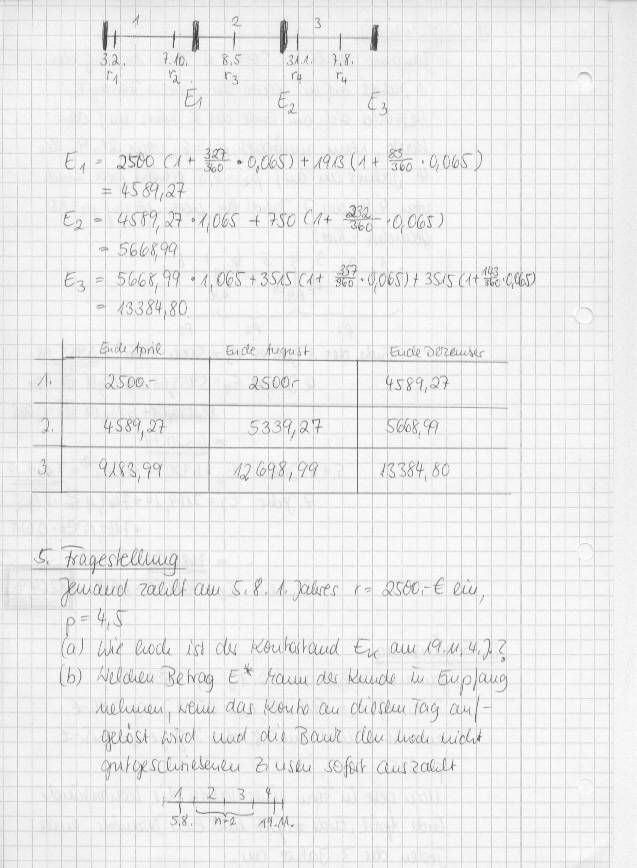 1 2 3
3.2. 7.10. 8.5 31.1. 7.8.
r1 r2 r3 r4 r4
E1 E2 E3
E1 = 2500 (1 + 327/360 · 0,065) + 1913 (1 + 83/360 · 0,065)
= 4589,27
E2 = 4589,27 · 1,065 + 750 (1 + 232/360 · 0,065)
= 5668,99
E3 = 5668,99 · 1,065 + 3515 (1 + 357/360 · 0,065) + 3515 (1 + 143/360 · 0,065)
= 13384,80
Ende April Ende August Ende Dezember
1. 2500.- 2500.- 4589,27
2. 4589,27 5339,27 5668,99
3. 9183,99 12698,99 13384,80
5. Fragestellung
Jemand zahlt am 5.8. 1. Jahres r = 2500.-€ ein,
p = 4,5
(a) Wie hoch ist der Kontostand EK am 19.11. 4. J.?
(b) Welchen Betrag E* kann der Kunde in Empfang
nehmen, wenn das Konto an diesem Tag auf-
gelöst wird und die Bank den noch nicht
gutgeschriebenen Zinsen sofort auszahlt
1 2 3 4
5.8. n=2 19.11.